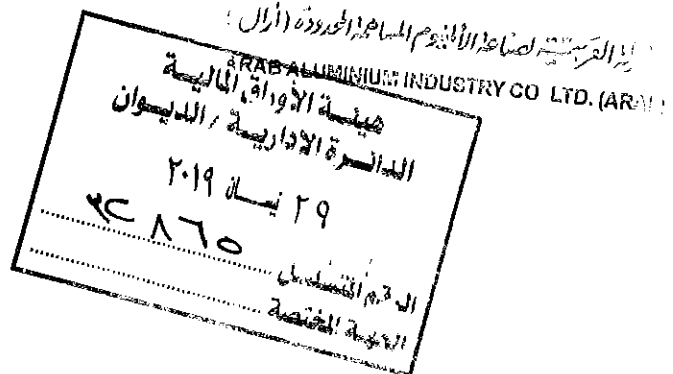 العربية لصناعة الألمنيوم المساهمة المحدودة (أرال)
ARAB ALUMINIUM INDUSTRY CO LTD. (ARAL
هيئة الأوراق المالية
الدائرة الادارية / الديوان
٢٩ نيسان ٢٠١٩
الرقم المتسلسل
الجهة المختصة